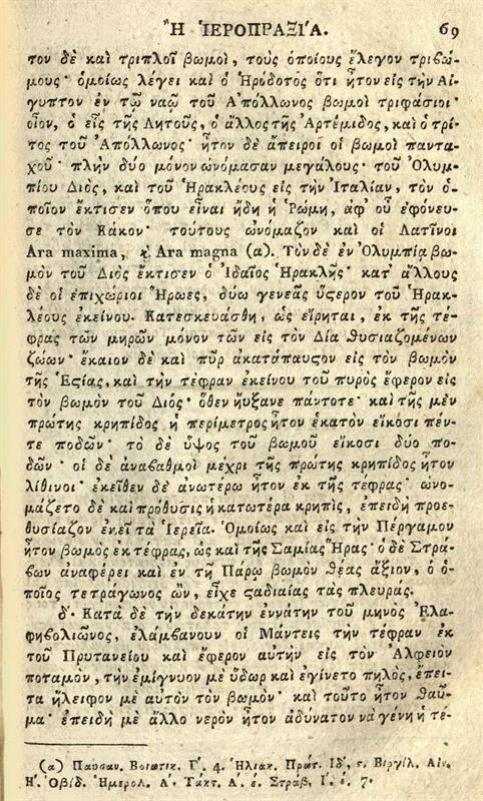 Ἡ ἹΕΡΟΠΡΑΞΙ'Α. 69
τον δὲ καὶ τριπλοῖ βωμοὶ, τοὺς ὁποίους ἔλεγον τριβώ-
μους· ὁμοίως λέγει καὶ ὁ Ἡρόδοτος ὅτι ἦτον εἰς τὴν Αἴ-
γυπτον ἐν τῷ ναῷ τοῦ Ἀπόλλωνος βωμοὶ τριφάσιοι·
οἷον, ὁ εἷς τῆς Λητοῦς, ὁ ἄλλος τῆς Ἀρτέμιδος, καὶ ὁ τρί-
τος τοῦ Ἀπόλλωνος· ἦτον δὲ ἄπειροι οἱ βωμοὶ παντα-
χοῦ· πλὴν δύο μόνον ὠνόμασαν μεγάλους· τοῦ Ὀλυμ-
πίου Διὸς, καὶ τοῦ Ἡρακλέους εἰς τὴν Ἰταλίαν, τὸν ὁ-
ποῖον ἔκτισεν ὅπου εἶναι ἤδη ἡ Ῥώμη, ἀφ' οὗ ἐφόνευ-
σε τὸν Κάκον· τούτους ὠνόμαζον καὶ οἱ Λατῖνοι
Ara maxima, ϗ Ara magna (α). Τὸν δὲ ἐν Ὀλυμπίᾳ βω-
μὸν τοῦ Διὸς ἔκτισεν ὁ Ἰδαῖος Ἡρακλῆς· κατ' ἄλλους
δὲ οἱ ἐπιχώριοι Ἥρωες, δύω γενεᾶς ὕϛερον τοῦ Ἡρακ-
λέους ἐκείνου. Κατεσκευάσθη, ὡς εἴρηται, ἐκ τῆς τέ-
φρας τῶν μηρῶν μόνον τῶν εἰς τὸν Δία θυσιαζομένων
ζώων· ἔκαιον δὲ καὶ πῦρ ἀκατάπαυϛον εἰς τὸν βωμὸν
τῆς Ἑϛίας, καὶ τὴν τέφραν ἐκείνου τοῦ πυρὸς ἔφερον εἰς
τὸν βωμὸν τοῦ Διός· ὅθεν ηὔξανε πάντοτε· καὶ τῆς μὲν
πρώτης κρηπίδος ἡ περίμετρος ἦτον ἑκατὸν εἴκοσι πέν-
τε ποδῶν· τὸ δὲ ὕψος τοῦ βωμοῦ εἴκοσι δύο πο-
δῶν· οἱ δὲ ἀναβαθμοὶ μέχρι τῆς πρώτης κρηπίδος ἦτον
λίθινοι· ἐκεῖθεν δὲ ἀνωτέρω ἦτον ἐκ τῆς τέφρας· ὠνο-
μάζετο δὲ καὶ πρόθυσις ἡ κατωτέρα κρηπὶς, ἐπειδὴ προε-
θυσίαζον ἐκεῖ τὰ Ἱερεῖα. Ὁμοίως καὶ εἰς τὴν Πέργαμον
ἦτον βωμὸς ἐκ τέφρας, ὡς καὶ τῆς Σαμίας Ἥρας· ὁ δὲ Στρά-
βων ἀναφέρει καὶ ἐν τῇ Πάρῳ βωμὸν θέας ἄξιον, ὁ ὁ-
ποῖος τετράγωνος ὢν, εἶχε ϛαδιαίας τὰς πλευράς.
δ· Κατὰ δὲ τὴν δεκάτην ἐννάτην τοῦ μηνὸς Ἐλα-
φηβολιῶνος, ἐλάμβανουν οἱ Μάντεις τὴν τέφραν ἐκ
τοῦ Πρυτανείου καὶ ἔφερον αὐτὴν εἰς τὸν Ἀλφειὸν
ποταμὸν, τὴν ἐμίγνυον μὲ ὕδωρ καὶ ἐγίνετο πηλὸς, ἔπει-
τα ἤλειφον μὲ αὐτὸν τὸν βωμόν· καὶ τοῦτο ἦτον θαῦ-
μα· ἐπειδὴ μὲ ἄλλο νερὸν ἦτον ἀδύνατον νὰ γένῃ ἡ τέ-
(α) Παυσαν. Βοιωτικ. Γ'. 4. Ἠλιακ. Πρώτ. ΙΔ', ϛ. Βιργίλ. Αἰν.
Η'. Ὀβίδ. Ἡμερολ. Α'. Τάκτ. Α'. έ. Στράβ. Ι'. έ. 7.